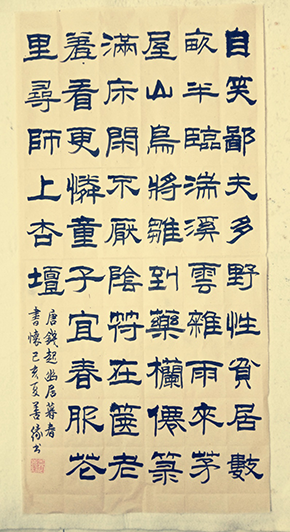 自笑鄙夫多野性貧居數
畝半臨湍溪雲雜雨來茅
屋山鳥將雛到藥欄僊箓
滿床閑不厭陰符在篋老
羞看更憐童子宜春服花
里尋師上杏壇
唐錢起幽居暮春
書懷己亥夏善缘书